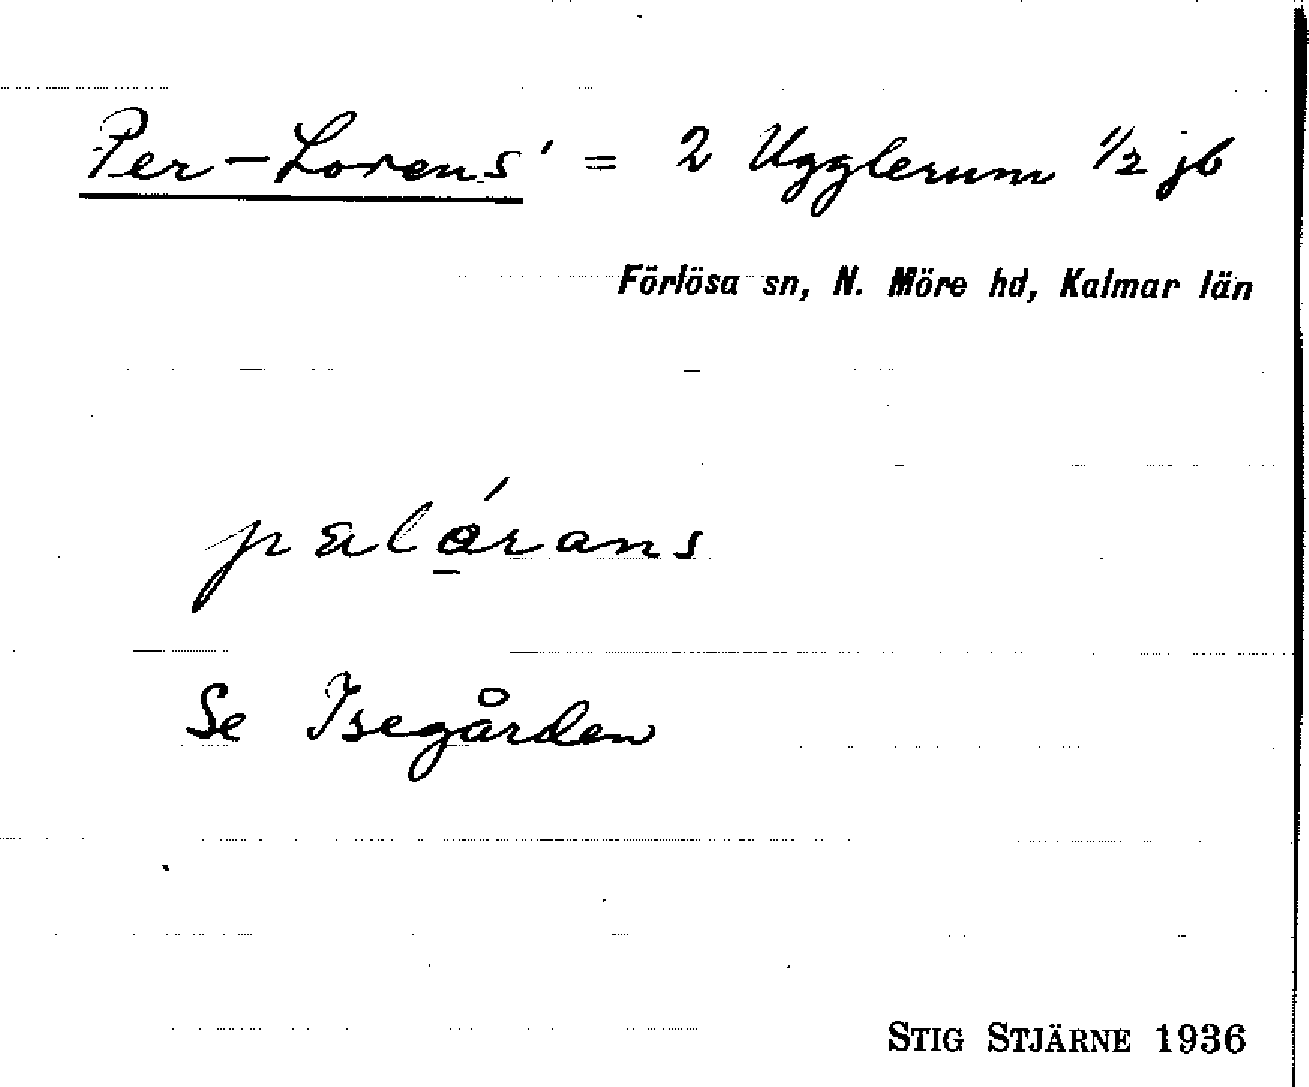 Per-Lorens' = 2 Ugglerum 1/2 jb
Förlösa sn, N. Möre hd, Kalmar län
pælórans
Se Isegården
STIG STJÄRNE 1936